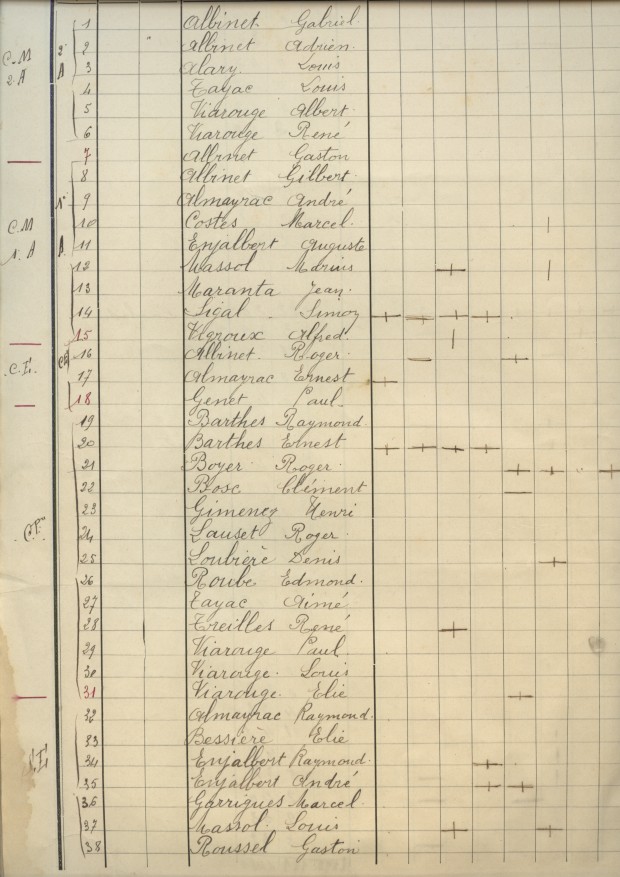 1 Albinet Gabriel
2 Albinet Adrien
C.M 2 A 3 Alary Louis
2 A 4 Tayac Louis
5 Viarouge Albert
6 Viarouge René
7 Albinet Gaston
8 Albinet Gilbert
9 Almayrac André
10 Costes Marcel
C.M A 11 Enjalbert Auguste
12 Massol Marius
13 Maranta Jean
14 Sigal Simon
15 Vigroux Alfred
16 Albinet Roger
C.E. 17 Almayrac Ernest
18 Genet Paul
19 Barthes Raymond
20 Barthes Ernest
21 Boyer Roger
22 Bosc Clément
23 Gimenez Henri
C.P. 24 Lauset Roger
25 Loubière Denis
26 Roube Edmond
27 Tayac Aimé
28 Treilles René
29 Viarouge Paul
30 Viarouge Louis
31 Viarouge Elie
32 Almayrac Raymond
33 Bessière Elie
34 Enjalbert Raymond
35 Enjalbert André
36 Garrigues Marcel
37 Massol Louis
38 Roussel Gaston